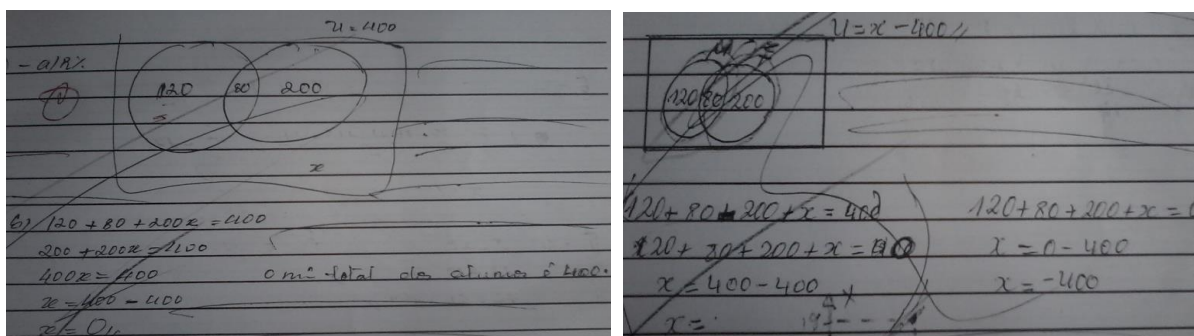 U = 400
1 - a) R%
120 80 200
x
b) 120 + 80 + 200x = 400
200 + 200x = 400
400x = 400 O nº total dos alunos é 400.
x = 400 - 400
x = 0
U = x - 400
120 80 200
120 + 80 + 200 + x = 400
120 + 80 + 200 + x =
x = 400 - 400
x =
120 + 80 + 200 + x =
x = 0 - 400
x = -400